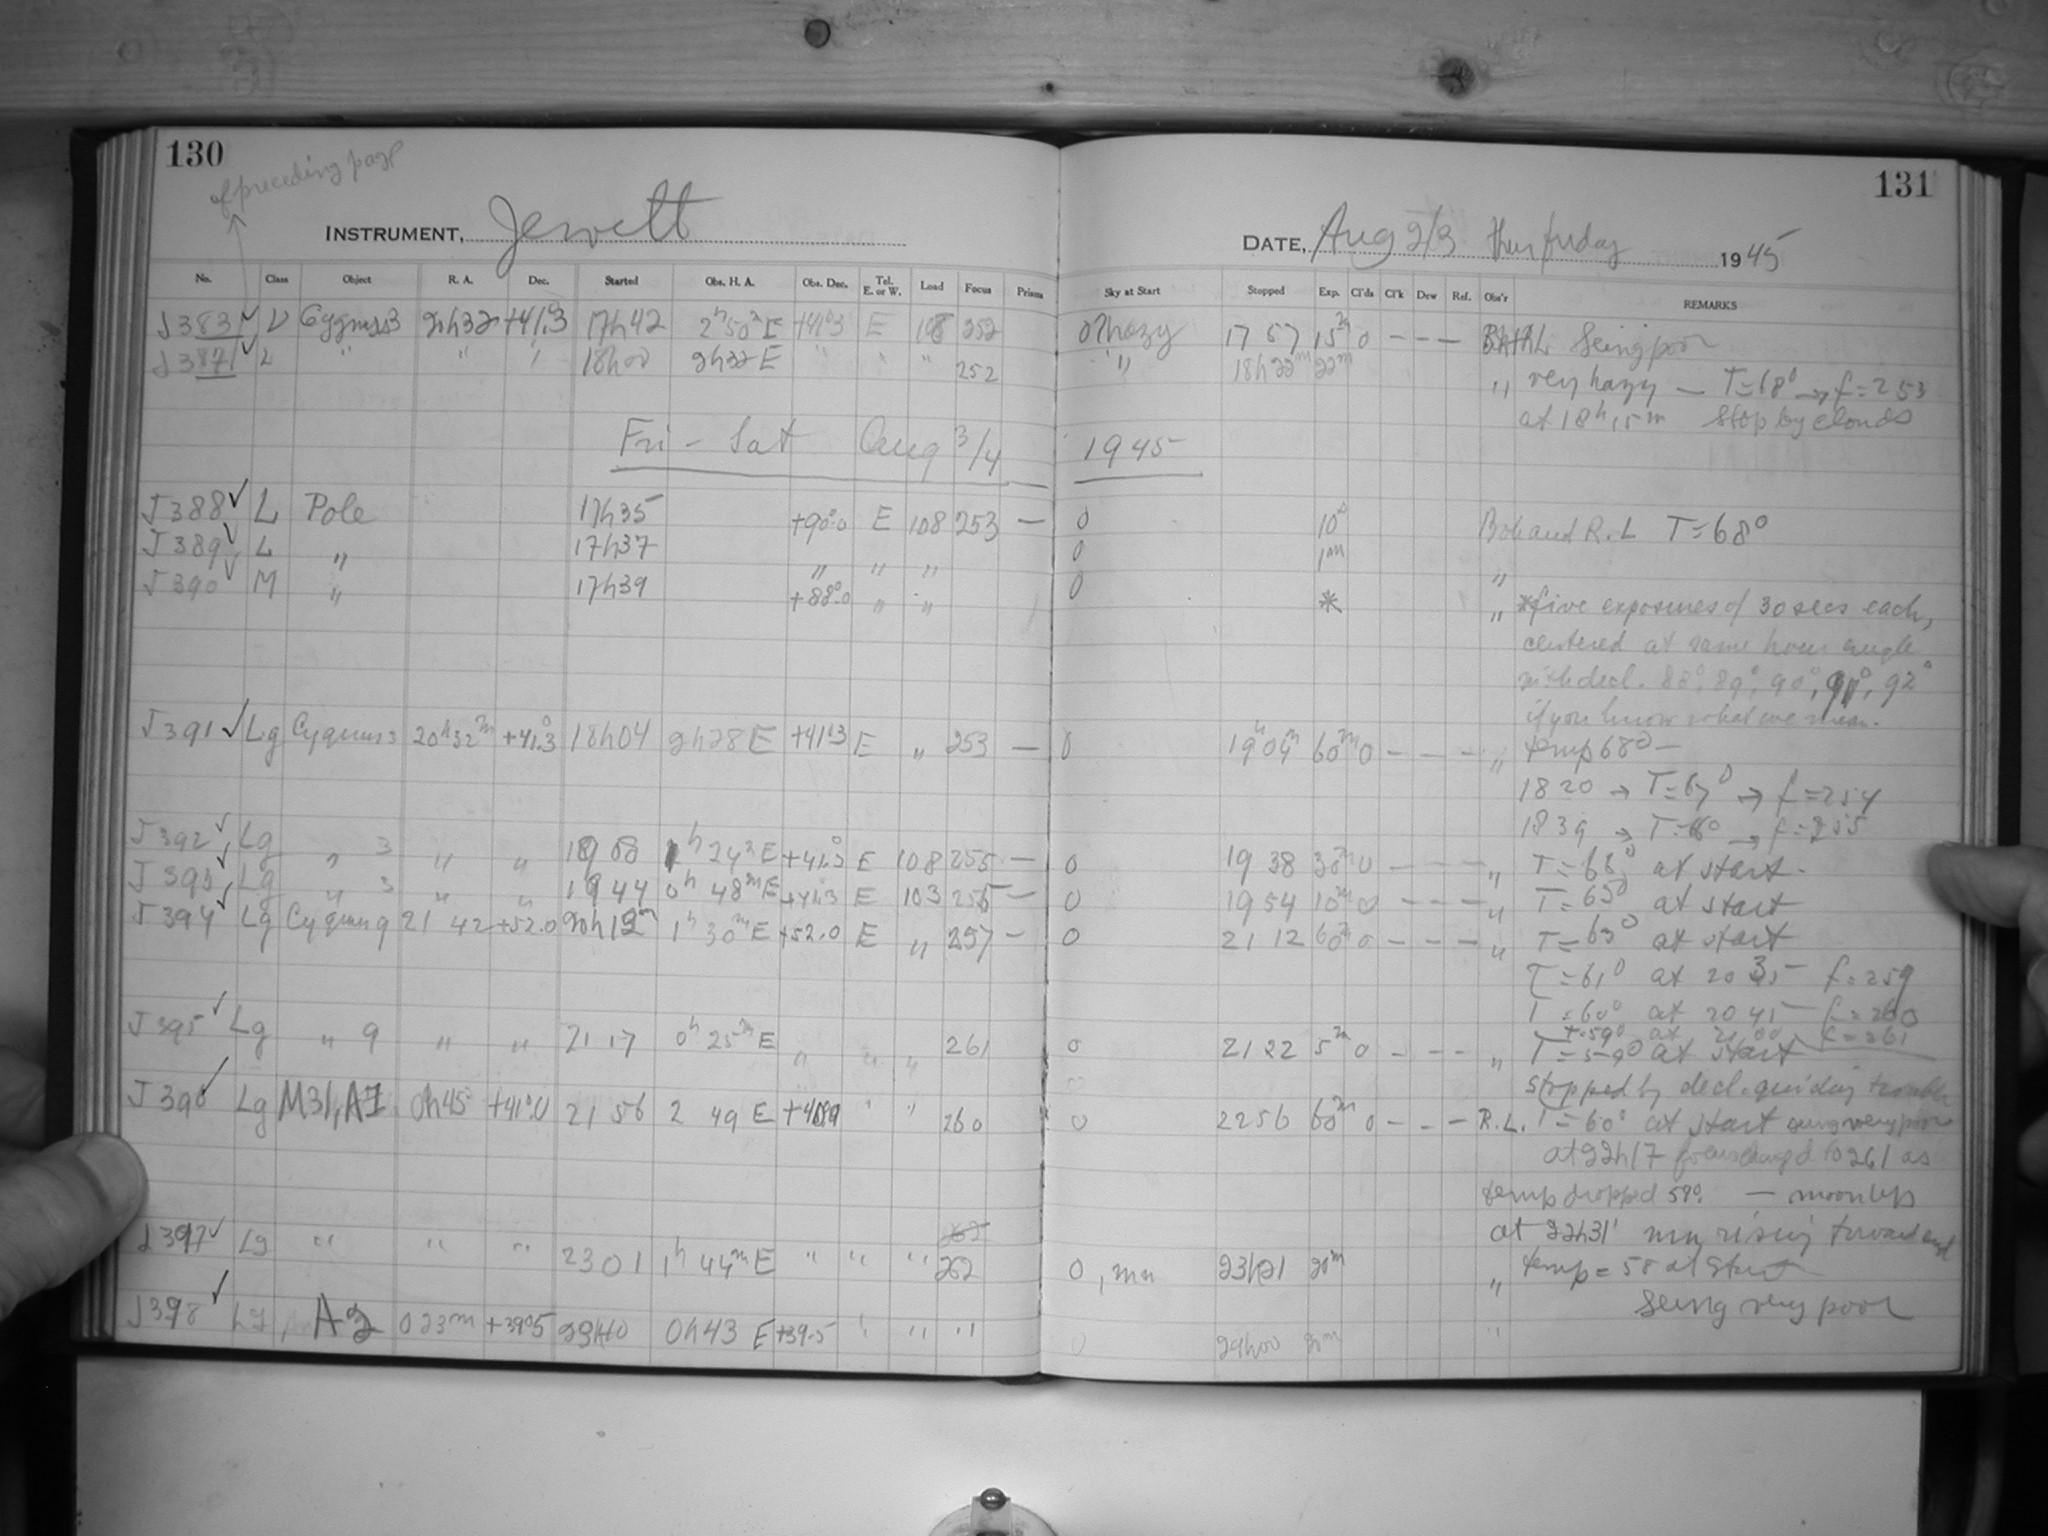 130
131
of preceding page
INSTRUMENT, Jewett
DATE, Aug 2/3 thur friday 1945
No. Class Object R. A. Dec. Started Obs. H. A. Obs. Dec. Tel. E. or W. Load Focus Prisms Sky at Start Stopped Exp. Cl'ds Cl'k Dew Ref. Obs'r REMARKS
J383 ✓ L Cygnus3 +41.3 17h42 2h50m E +41°3 E 108 252 hazy 17 57 15m 0 - - - Seeing poor
J387 ✓ L " " " 18h00 2h32 E " " " 252 " 18h22m 22m " very hazy — T=68° → f=253
at 18h15m stop by clouds
Fri - Sat Aug 3/4 1945
J388 ✓ L Pole 17h35 +90°.0 E 108 253 — 0 10s Bob and R.L T=68°
J389 ✓ L " 17h37 " " " 0 1m "
J390 ✓ M " 17h39 +88°.0 " " 0 * " *five exposures of 30 secs each,
centered at same hour angle
with decl. 88°, 89°, 90°, 91°, 92°
if you know what we mean.
J391 ✓ Lg Cygnus 3 20h32m +41.3 18h04 2h28 E +41.3 E " 253 — 0 19h04m 60m 0 - - - " temp 68° —
1820 → T=67° → f=254
1839 → → f=255
J392 ✓ Lg " 3 " " 24m E +41.3 E 108 255 — 0 19 38 30m 0 - - - " at start.
J393 ✓ Lg " 3 " " 1944 0h 48m E +41.3 E 103 — 0 1954 10m 0 - - - " T=65° at start
J394 ✓ Lg Cygnus 9 21 42 +52.0 20h12m 1h 30m E +52.0 E " 257 — 0 21 12 60m 0 - - - " T=63° at start
T=61° at 20 35 — f=259
T=60° at 20 45 — f=260
T=59° at 21 00 f=261
J395 ✓ Lg " 9 " " 21 17 0h 25m E " " " 261 0 2122 5m 0 - - - " T=59° at start
stopped by decl. guiding trouble
J396 ✓ Lg M31, A1 0h45 +41°.0 21 56 2 49 E " " 260 0 2256 60m 0 - - - R.L. T=60° at start seeing very poor
at 22h17 focus changed to 261 as
temp dropped 59°. —
at 22h31' mn rising toward end
J397 ✓ Lg " " " 2301 1h 44m E " " " 262 0, mn 23h21 20m " temp = 58 at Start
Seeing very poor
J398 ✓ Lg A2 0 23m +39°5 23h40 0h43 E +39.5 " " " 0 24h00 20m "